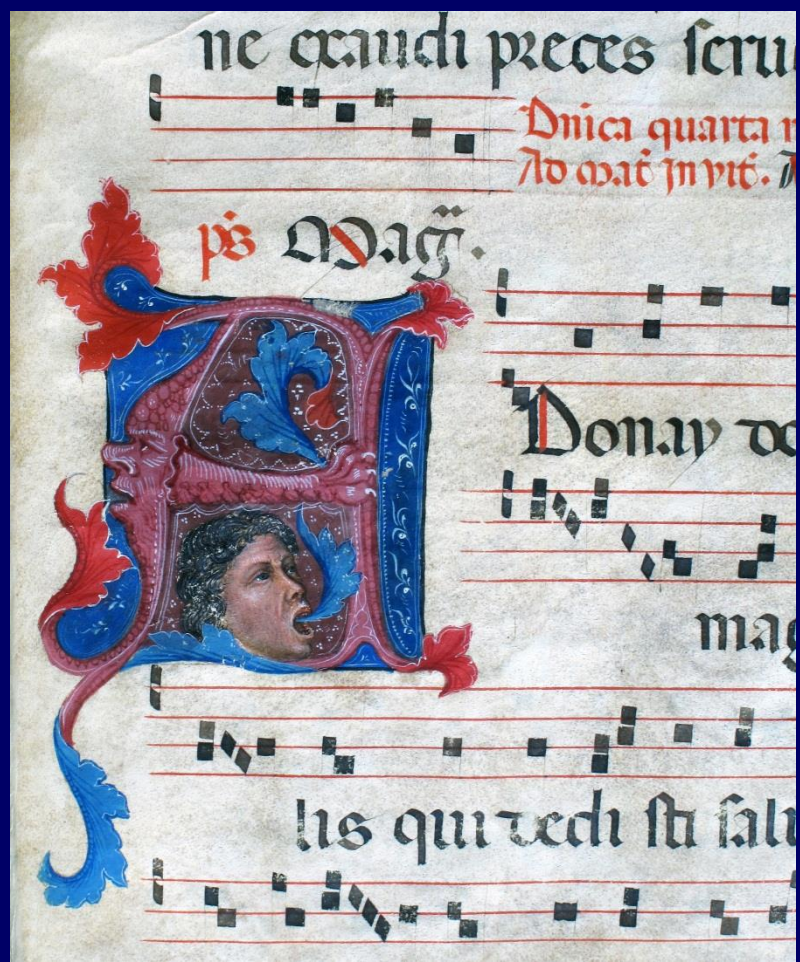 ne exaudi preces seru
Dnica quarta
Ad mat̃ Jn vit̃.
ps̃ Mag̃.
Donay do
mag
lis qui dedi sti salu